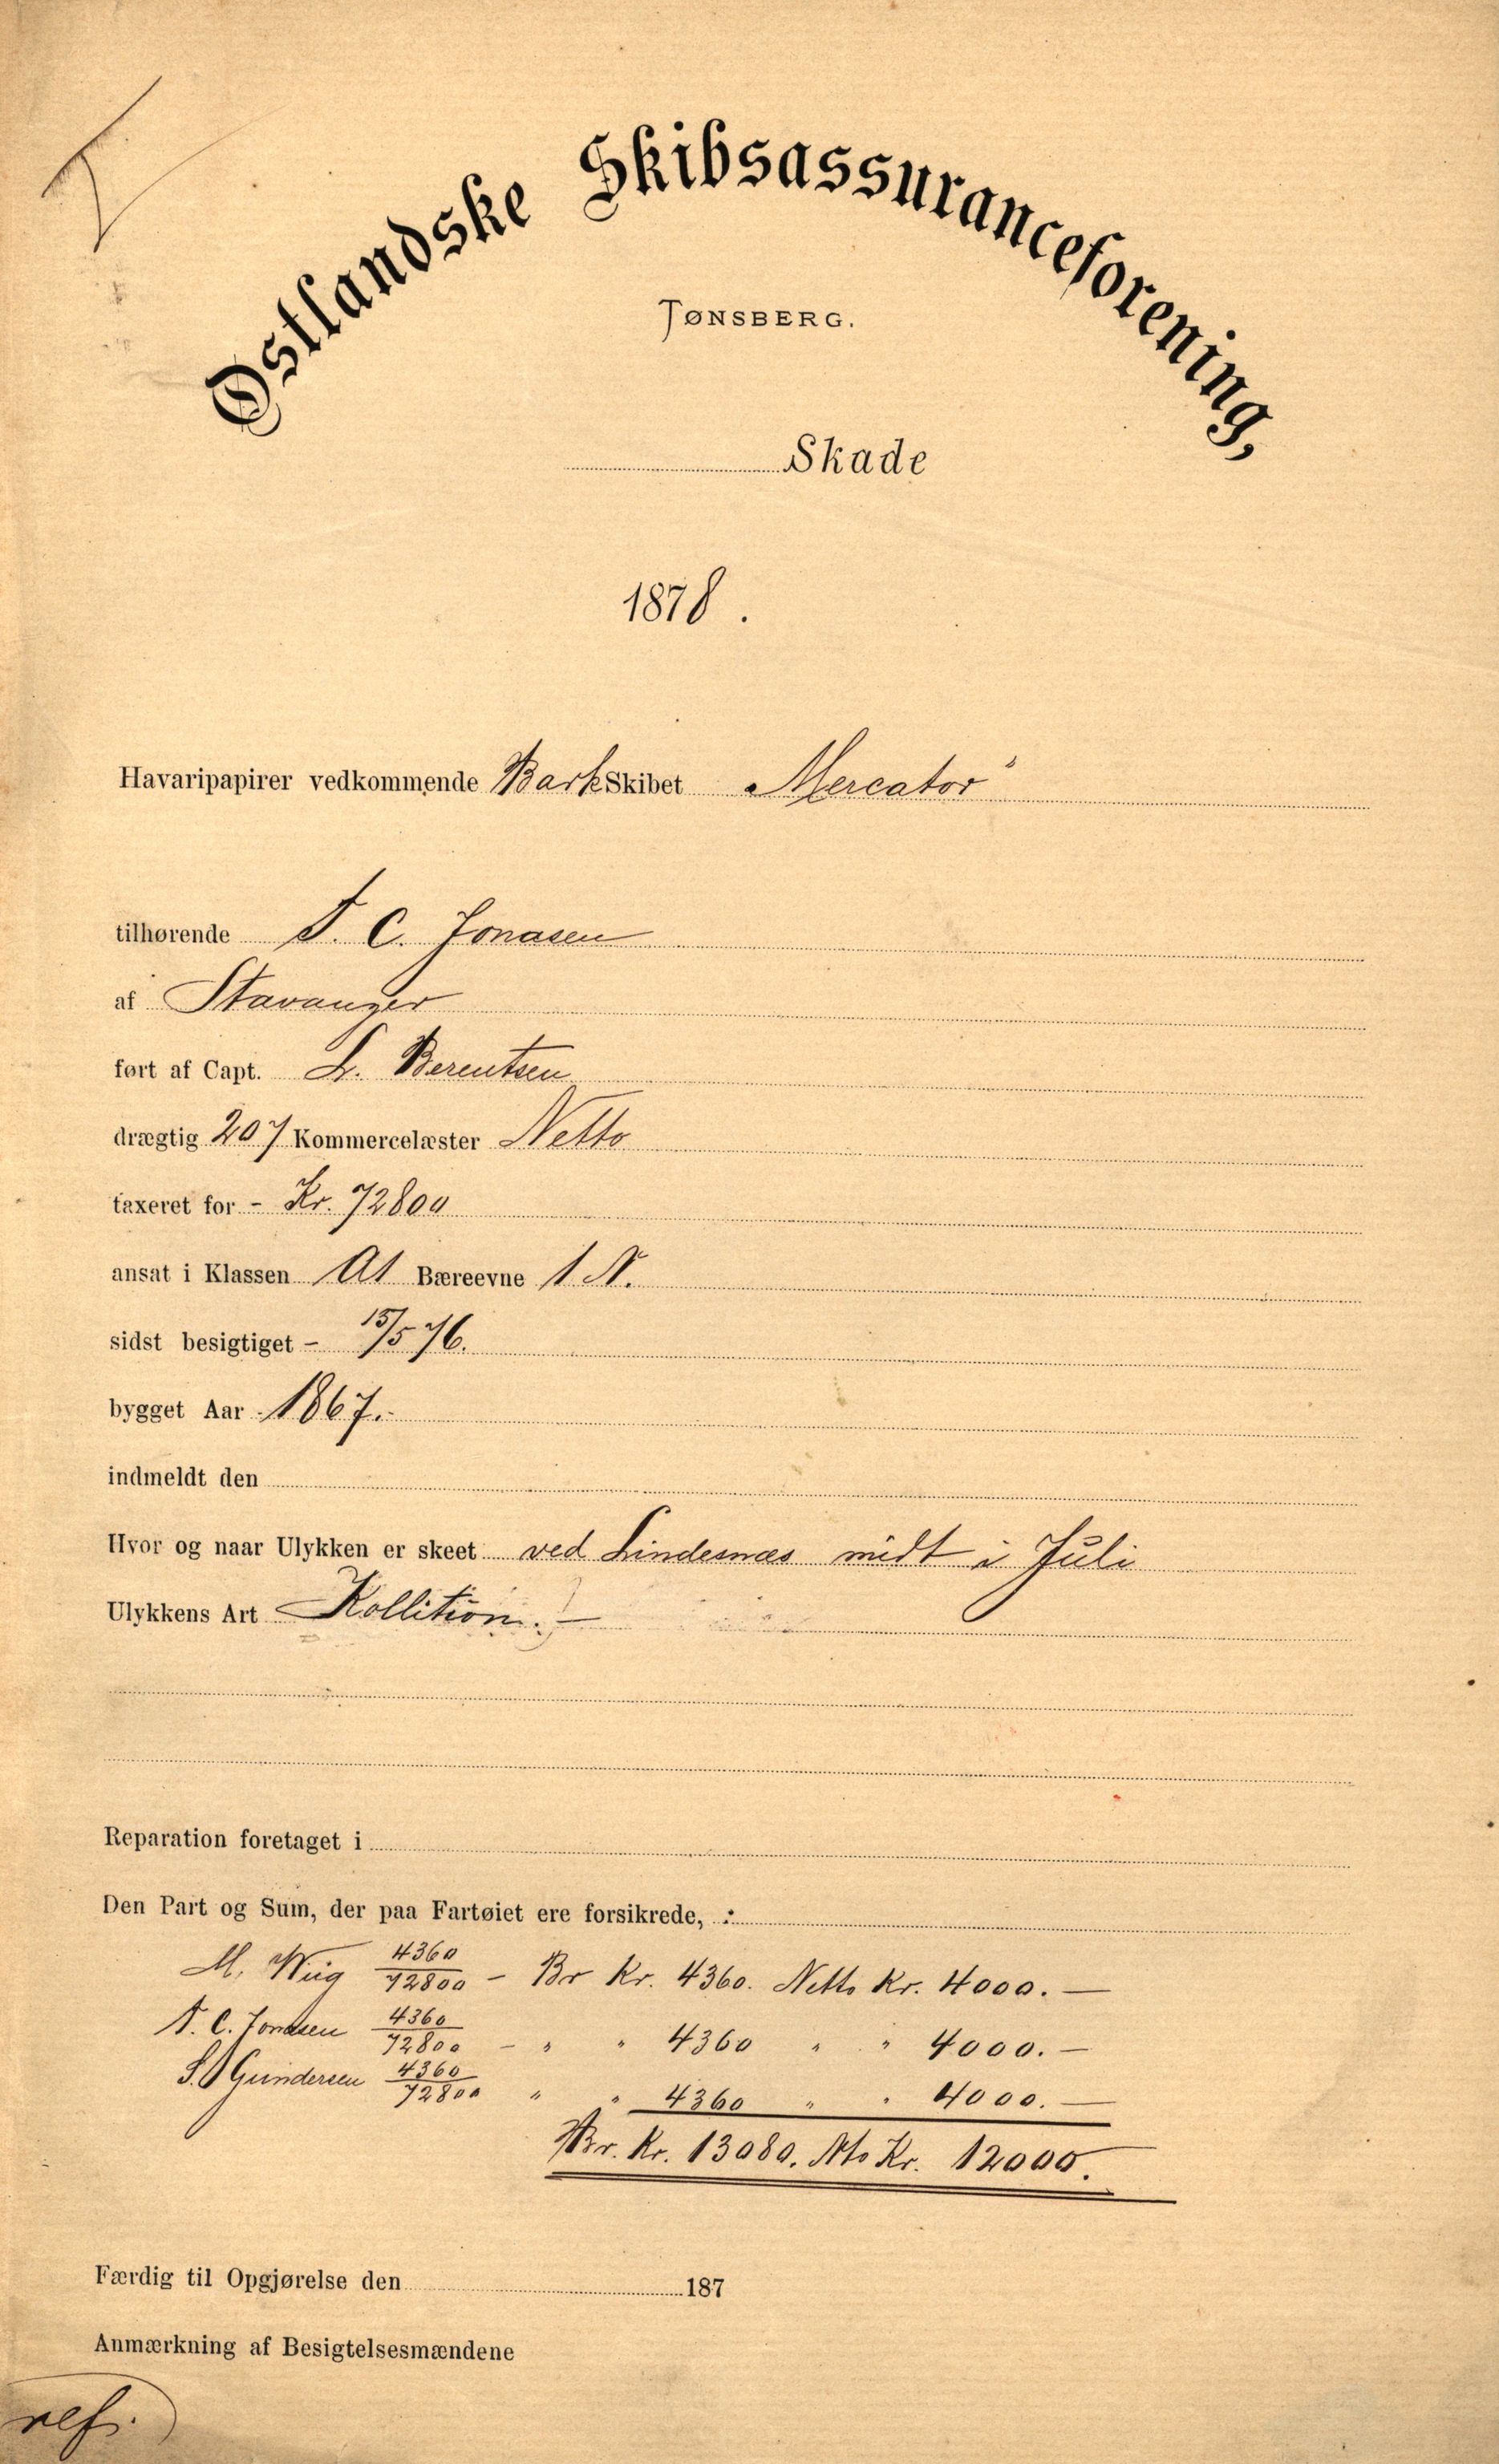 Østlandske Skibsassuranceforening,
TØNSBERG.
Skade
1878.
Havaripapirer vedkommende Bark Skibet „Mercator"
tilhørende T. C. Jonasen
af Stavanger
ført af Capt. L. Berentsen
drægtig 207 Kommercelæster Netto
taxeret for - Kr. 72800
ansat i Klassen A1 Bæreevne 1 N.
sidst besigtiget - 15/5 76.
bygget Aar 1867.
indmeldt den
Hvor og naar Ulykken er skeet ved Lindesnæs midt i Juli
Ulykkens Art Kollition. —
Reparation foretaget i
Den Part og Sum, der paa Fartøiet ere forsikrede, :
M. Wiig 4360/72800 - Br Kr. 4360. Netto Kr. 4000. —
T. C. Jonasen 4360/72800 - " " 4360 " " 4000. —
Gundersen 4360/72800 " " 4360 " " 4000. —
Br. Kr. 13080. Nto Kr. 12000.
Færdig til Opgjørelse den 187
Anmærkning af Besigtelsesmændene